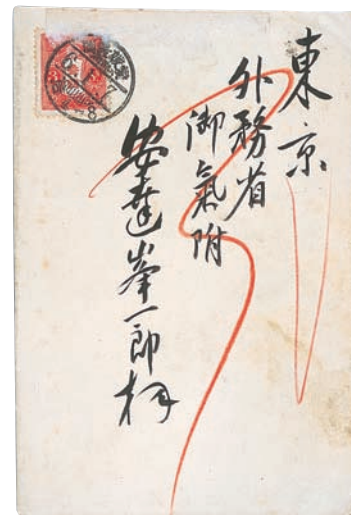 東京
外務省
御氣附
安達峯一郎様